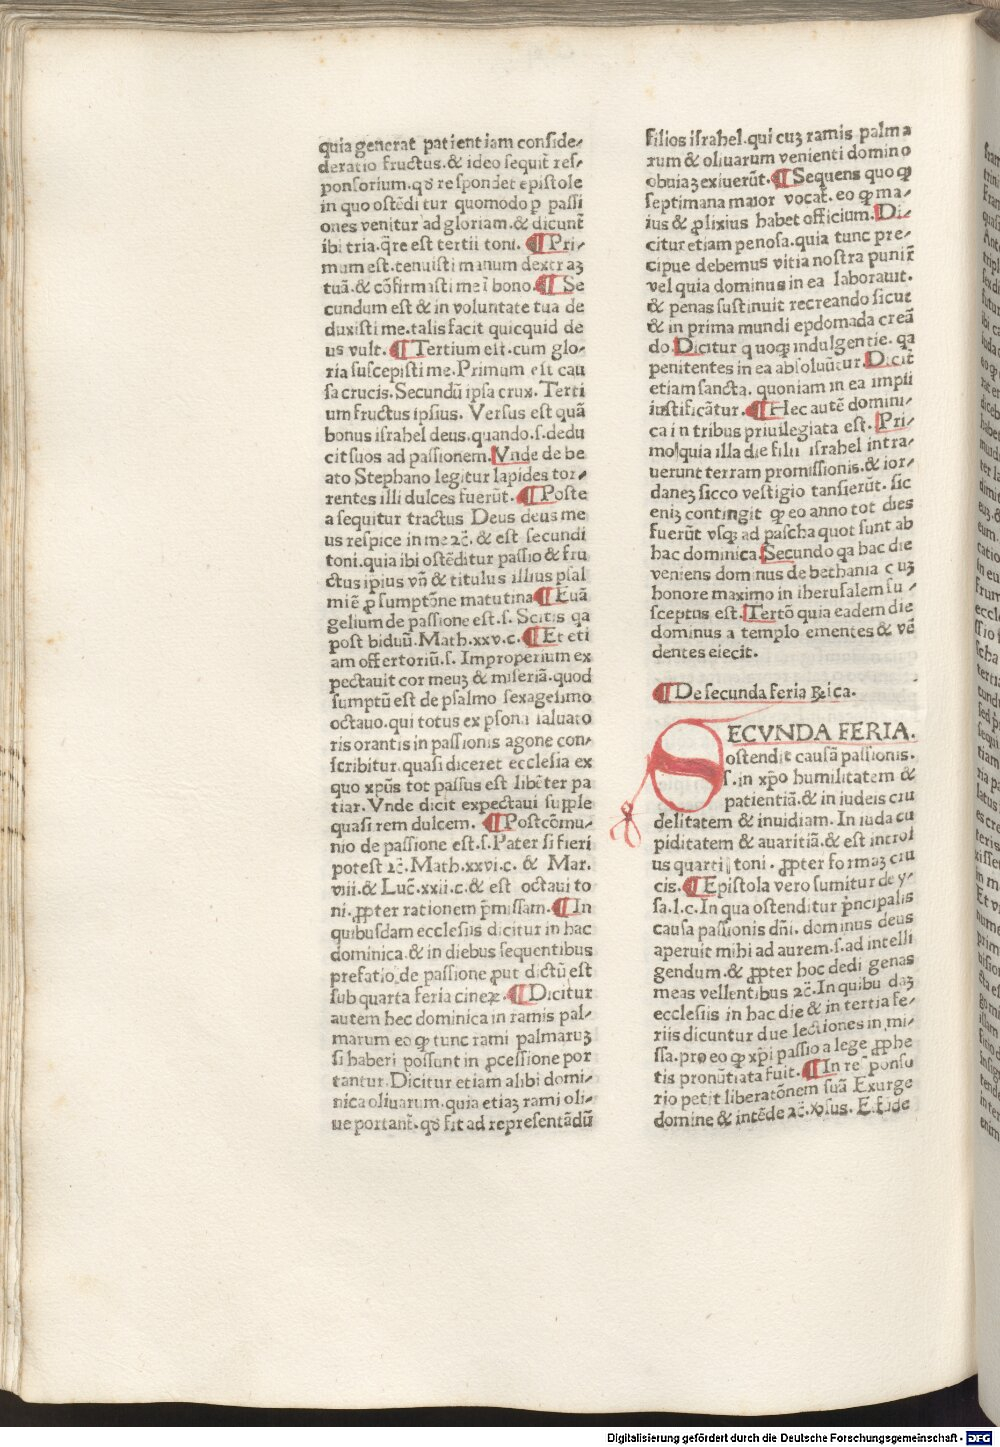 quia generat patientiam conside⸗
deratio fructus.& ideo sequit res⸗
ponsorium.qđ respondet epistole
in quo ostēditur quomodo ꝑ passi
ones venitur ad gloriam.& dicunt̄
ibi tria.q̄re est tertii toni. ¶ Pri⸗
mum est.tenuisti manum dexteraꝫ
tuā.& cōfirmasti me ī bono. ¶ Se
cundum est & in voluntate tua de
duxisti me.talis facit quicquid de
us vult. ¶ Tertium est.cum glo⸗
ria suscepisti me.Primum est cau
sa crucis.Secundū ipsa crux.Terti
um fructus ipsius. Versus est quā
bonus israhel deus.quando.s.dedu
cit suos ad passionem. Vnde de be
ato Stephano legitur lapides tor⸗
rentes illi dulces fuerūt. ¶ Poste
a sequitur tractus Deus deus me
us respice in me ⁊c̄. & est secundi
toni.quia ibi ostēditur passio & fru
ctus ipius vn̄ & titulus illius psal
mi ē ꝓ sumptōne matutina ¶ Euā
gelium de passione est.s. Scitis qa
post biduū. Math.xxv.c. ¶ Et eti
am offertoriū.s. Improperium ex
pectauit cor meuꝫ & miseriā.quod
sumptū est de psalmo sexagesimo
octauo.qui totus ex psona saluato
ris orantis in passionis agone con⸗
scribitur.quasi diceret ecclesia ex
quo xp̄us tot passus est libēter pa
tiar. Vnde dicit expectaui supple
quasi rem dulcem. ¶ Postcōmu⸗
nio de passione est.s. Pater si fieri
potest ⁊c̄. Math.xxvi.c. & Mar.
viii.& Luc̄.xxii.c.& est octaui to
ni.ꝓpter rationem p̄missam. ¶ In
quibusdam ecclesiis dicitur in hac
dominica.& in diebus sequentibus
prefatio de passione ꝓut dictū est
sub quarta feria cineꝝ. ¶ Dicitur
autem hec dominica in ramis pal⸗
marum eo ꝙ tunc rami palmaruꝫ
si haberi possunt in ꝓcessione por
tantur.Dicitur etiam alibi domi⸗
nica oliuarum.quia etiaꝫ rami oli⸗
ue portant̄.qđ fit ad representādū
filios israhel.qui cuꝫ ramis palma
rum & oliuarum venienti domino
obuiaꝫ exiuerūt. ¶ Sequens quoꝙ
septimana maior vocat̄. eo ꝙ ma⸗
ius & ꝓlixius habet officium. Di⸗
citur etiam penosa.quia tunc pre⸗
cipue debemus vitia nostra punir̄
vel quia dominus in ea laborauit.
& penas sustinuit recreando sicut
& in prima mundi epdomada creā
do.Dicitur quoqꝫ indulgentie. qa
penitentes in ea absoluūtur.Dicit̄
etiam sancta. quoniam in ea impii
iustificātur. ¶ Hec autē domini⸗
ca in tribus priuilegiata est. Pri⸗
mo quia illa die filii israhel intra⸗
uerunt terram promissionis.& ior⸗
daneꝫ sicco vestigio tansierūt. sic
eniꝫ contingit ꝙ eo anno tot dies
fuerūt vsqꝫ ad pascha quot sunt ab
hac dominica.Secundo qa hac die
veniens dominus de bethania cuꝫ
honore maximo in iherusalem su⸗
sceptus est.Tertō quia eadem die
dominus a templo ementes & vē
dentes eiecit.
¶ De secunda feria ꝶica.
SECVNDA FERIA.
ostendit causā passionis.
s.in xp̄o humilitatem &
patientiā.& in iudeis cru
delitatem & inuidiam. In iuda cu
piditatem & auaritiā.& est introi
us quarti toni. ꝓpter formaꝫ cru
cis. ¶ Epistola vero sumitur de y⸗
sa.l.c.In qua ostenditur p̄ncipalis
causa passionis dn̄i. dominus deus
aperuit mihi ad aurem.s.ad intelli
gendum.& ꝓpter hoc dedi genas
meas vellentibus ⁊c̄.In quibudaꝫ
ecclesiis in hac die & in tertia fe⸗
riis dicuntur due lectiones in mi⸗
ssa.pro eo ꝙ xp̄i passio a lege ꝓphe
tis pronūtiata fuit. ¶ In responso
rio petit liberatōnem suā Exurge
domine & intēde ⁊c̄.x̄sus. Effūde
Digitalisierung gefördert durch die Deutsche Forschungsgemeinschaft - DFG